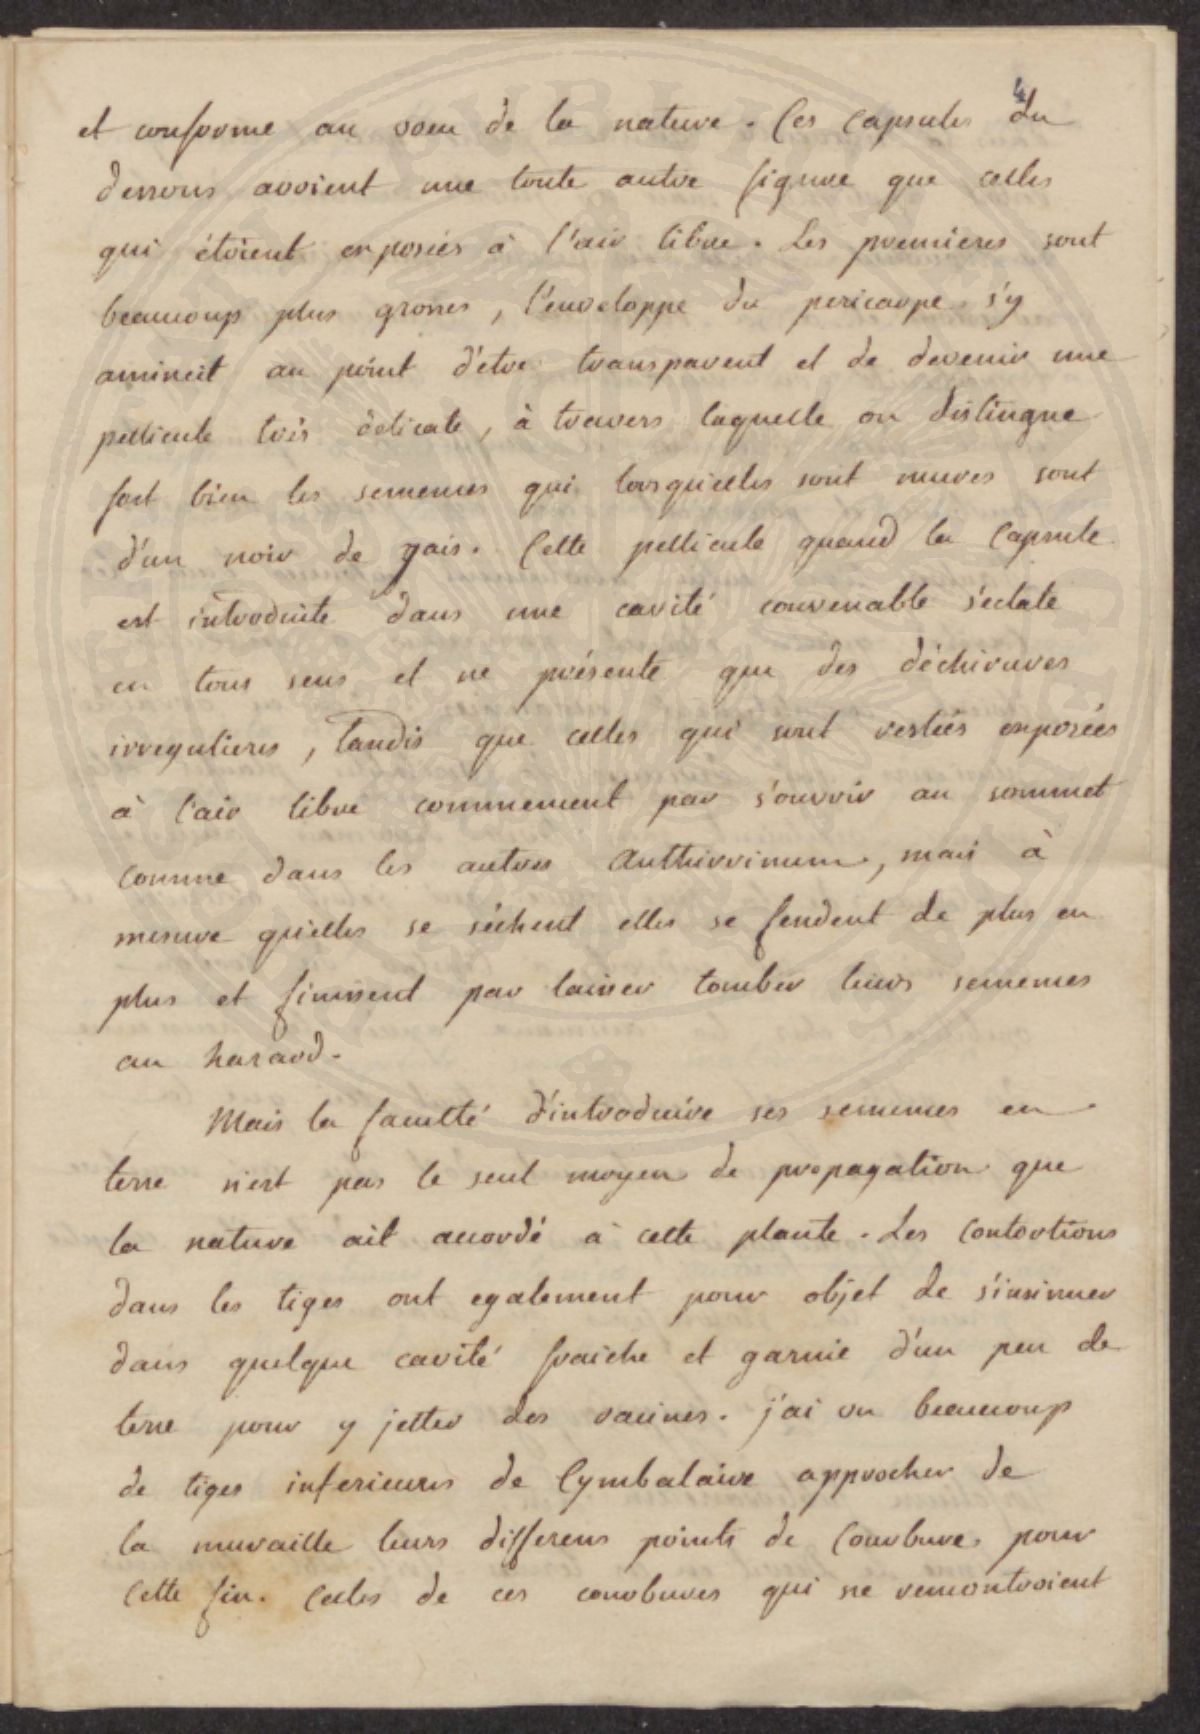 4
et conforme au voeu de la nature. Ces Capsules du
dessous avoient une toute autre figure que celles
qui étoient exposées à l'air libre. Les premieres sont
beaucoup plus grosses, l'enveloppe du pericarpe s'y
amincit au point d'être transparent et de devenir une
pellicule très délicate, à travers laquelle on distingue
fort bien les semences qui lorsqu'elles sont mures sont
d'un noir de gais. Cette pellicule quand la Capsule
est introduite dans une cavité convenable s'eclate
en tous sens et ne présente que des déchirures
irregulieres, Tandis que celles qui sont restées exposées
à l'air libre commencent par s'ouvrir au sommet
comme dans les autres Anthirrinum, mais à
mesure qu'elles se séchent elles se fendent de plus en
plus et finissent par laisser tomber leurs semences
au hasard.
Mais la faculté d'introduire ses semences en
terre n'est pas le seul moyen de propagation que
la nature ait accordé à cette plante. Les Contortions
dans les tiges ont egalement pour objet de s'insinuer
dans quelque cavité fraiche et garnie d'un peu de
terre pour y jetter des racines. j'ai vu beaucoup
de tiges inferieures de Cymbalaire approcher de
la muraille leurs differens points de Courbure pour
Cette fin. Celles de ces courbures qui ne rencontroient